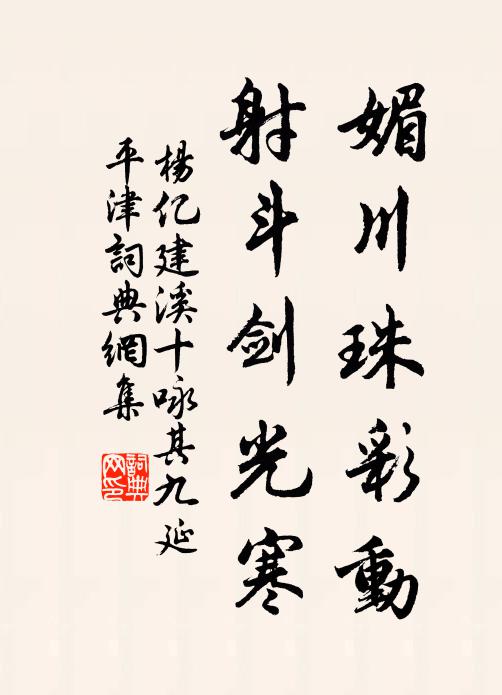 媚川珠彩動
射斗劍光寒
楊亿建溪十咏其九延
平津詞典網集
詞典
网印